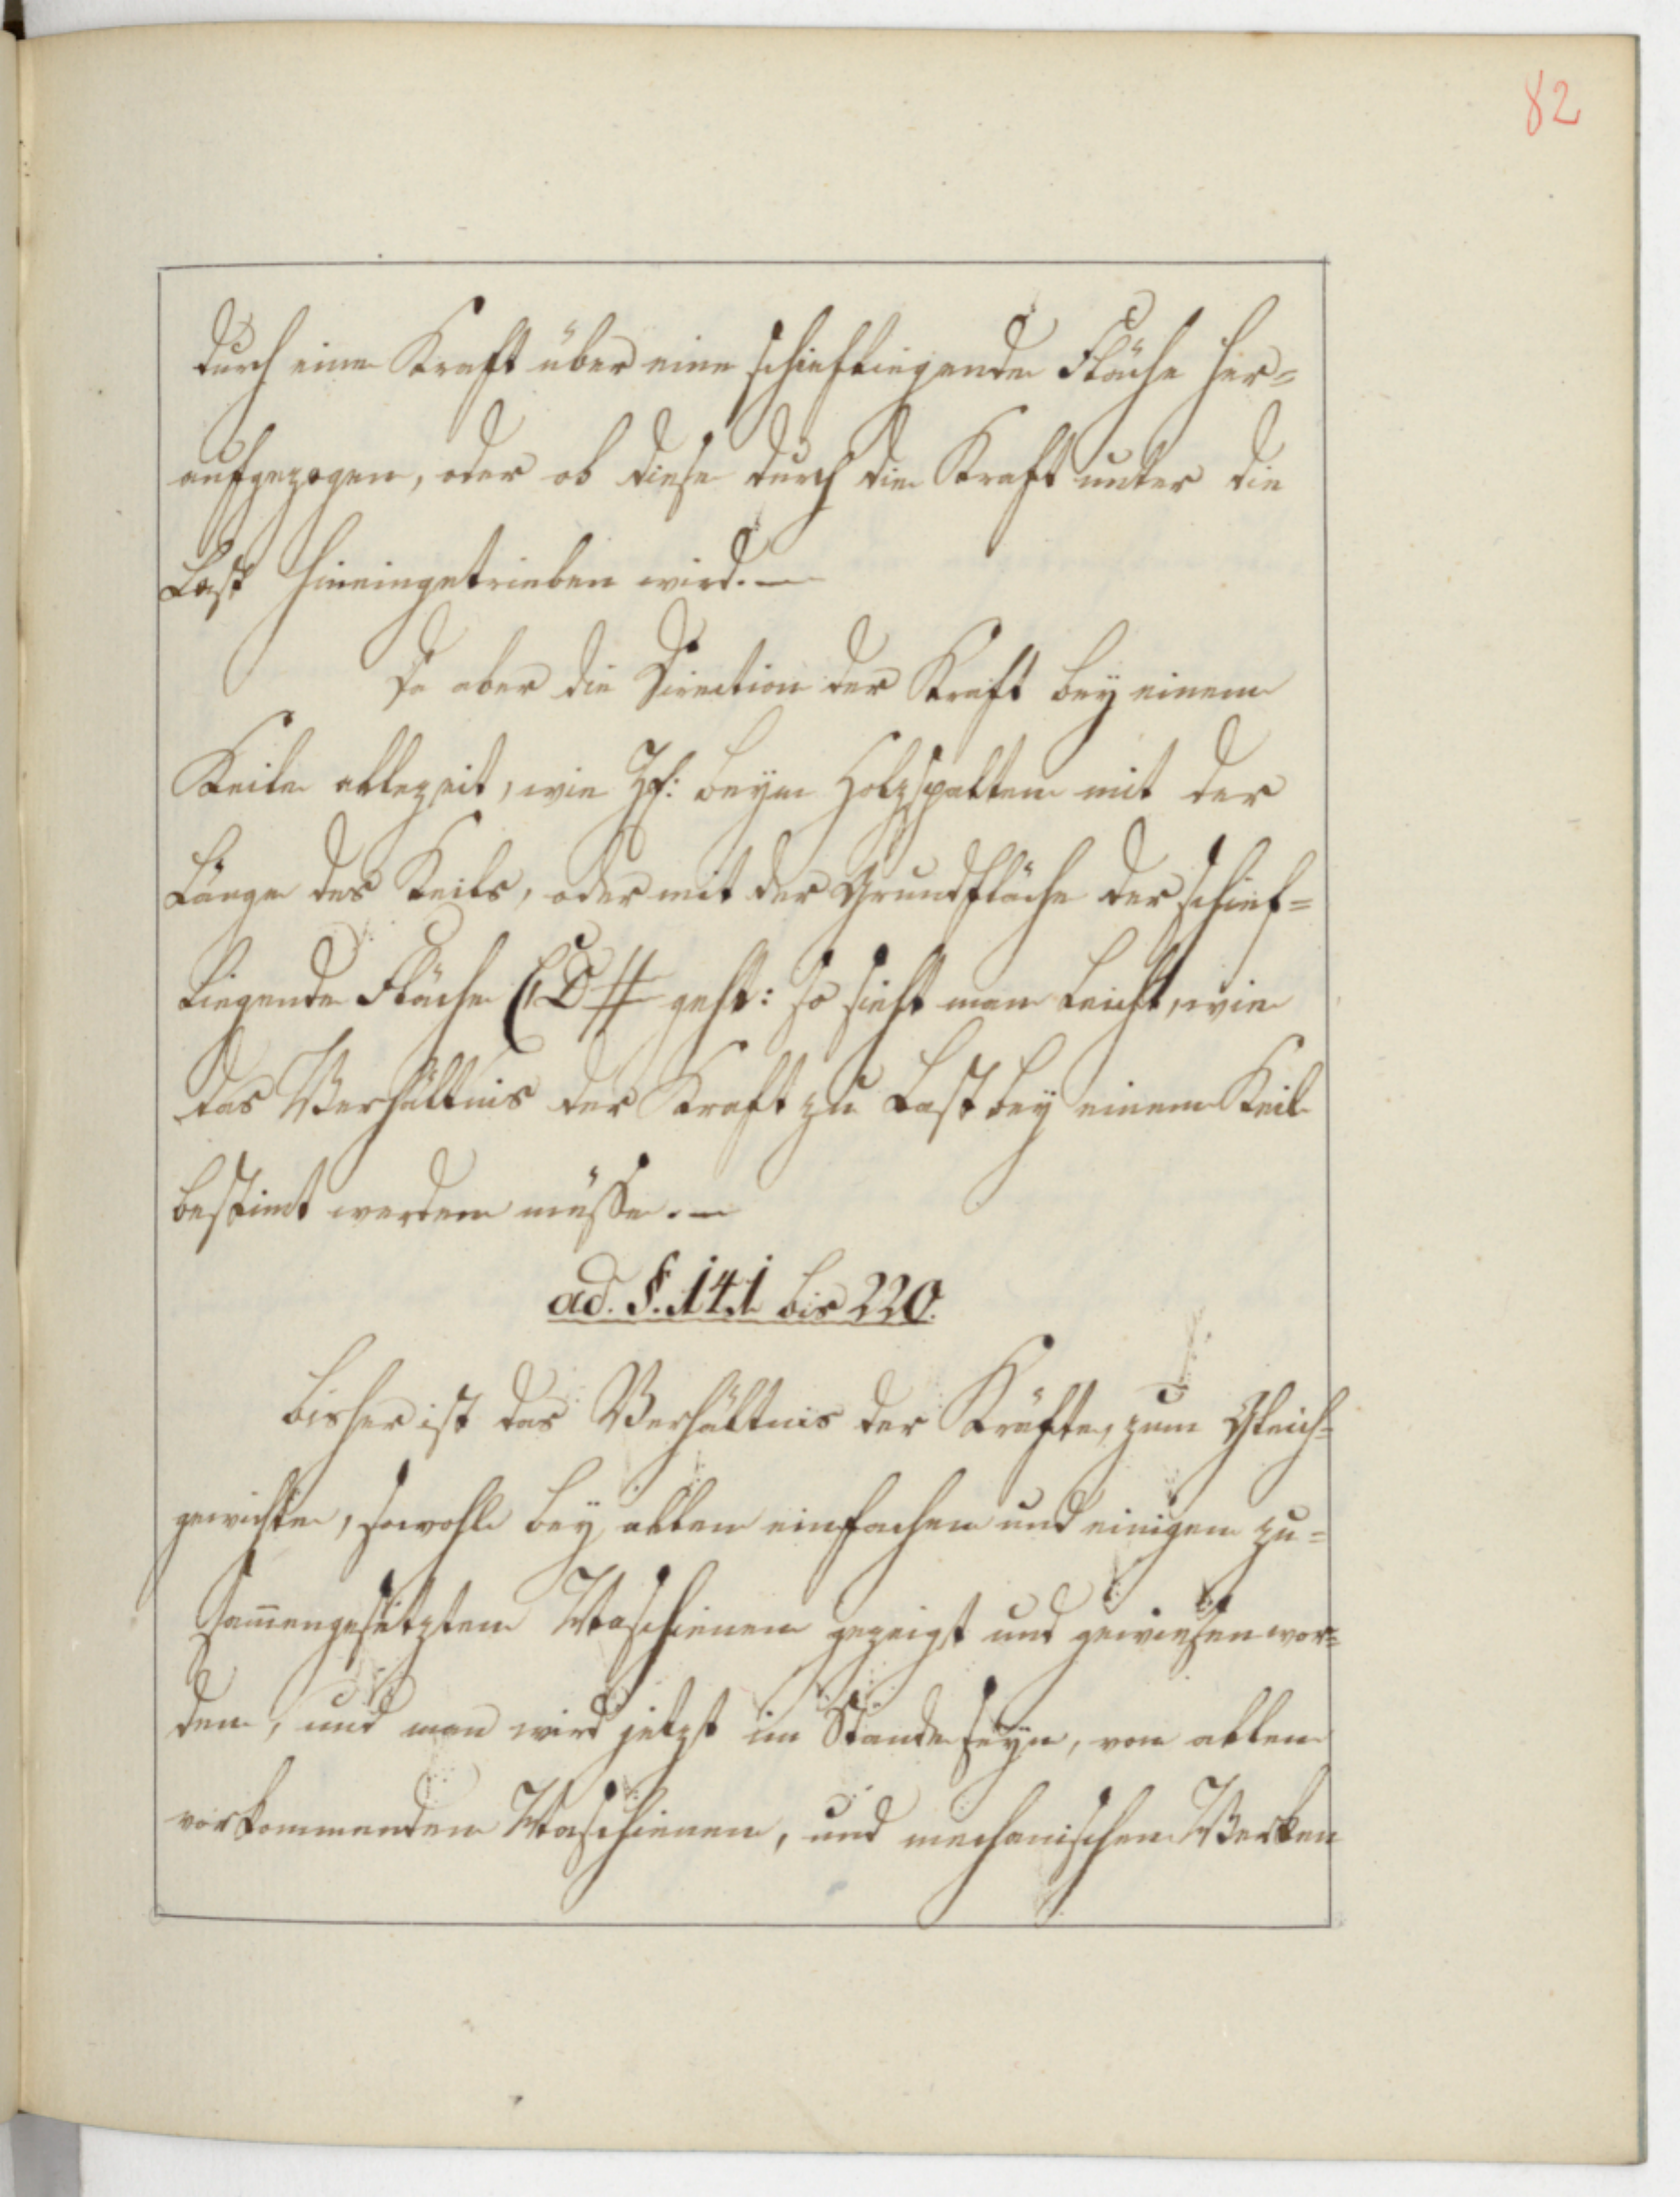 82
durch eine Kraft über eine schiefliegende Fläche her=
aufgezogen, oder ob diese durch die Kraft unter die
Last hineingetrieben wird. —
Da aber die Direction der Kraft bey einem
Keile allezeit, wie beym Holzspalten mit der
Länge des Keils, oder mit der Grundfläche der schief=
liegende Fläche geht: so sieht man leicht, wie
das Verhältnis der Kraft zu Last bey einem Keil
bestimt werden müsse. —
ad. §. 141 bis 220.
Bisher ist das Verhältnis der Kräfte, zum Gleich=
gewichte, sowohl bey allen einfachen und einigen zu=
sam̄engesetzten Maschienen gezeigt und gewiesen wor=
den, und man wird jetzt im Stande seyn, von allen
vorkommenden Maschienen, und mechanischen Werken